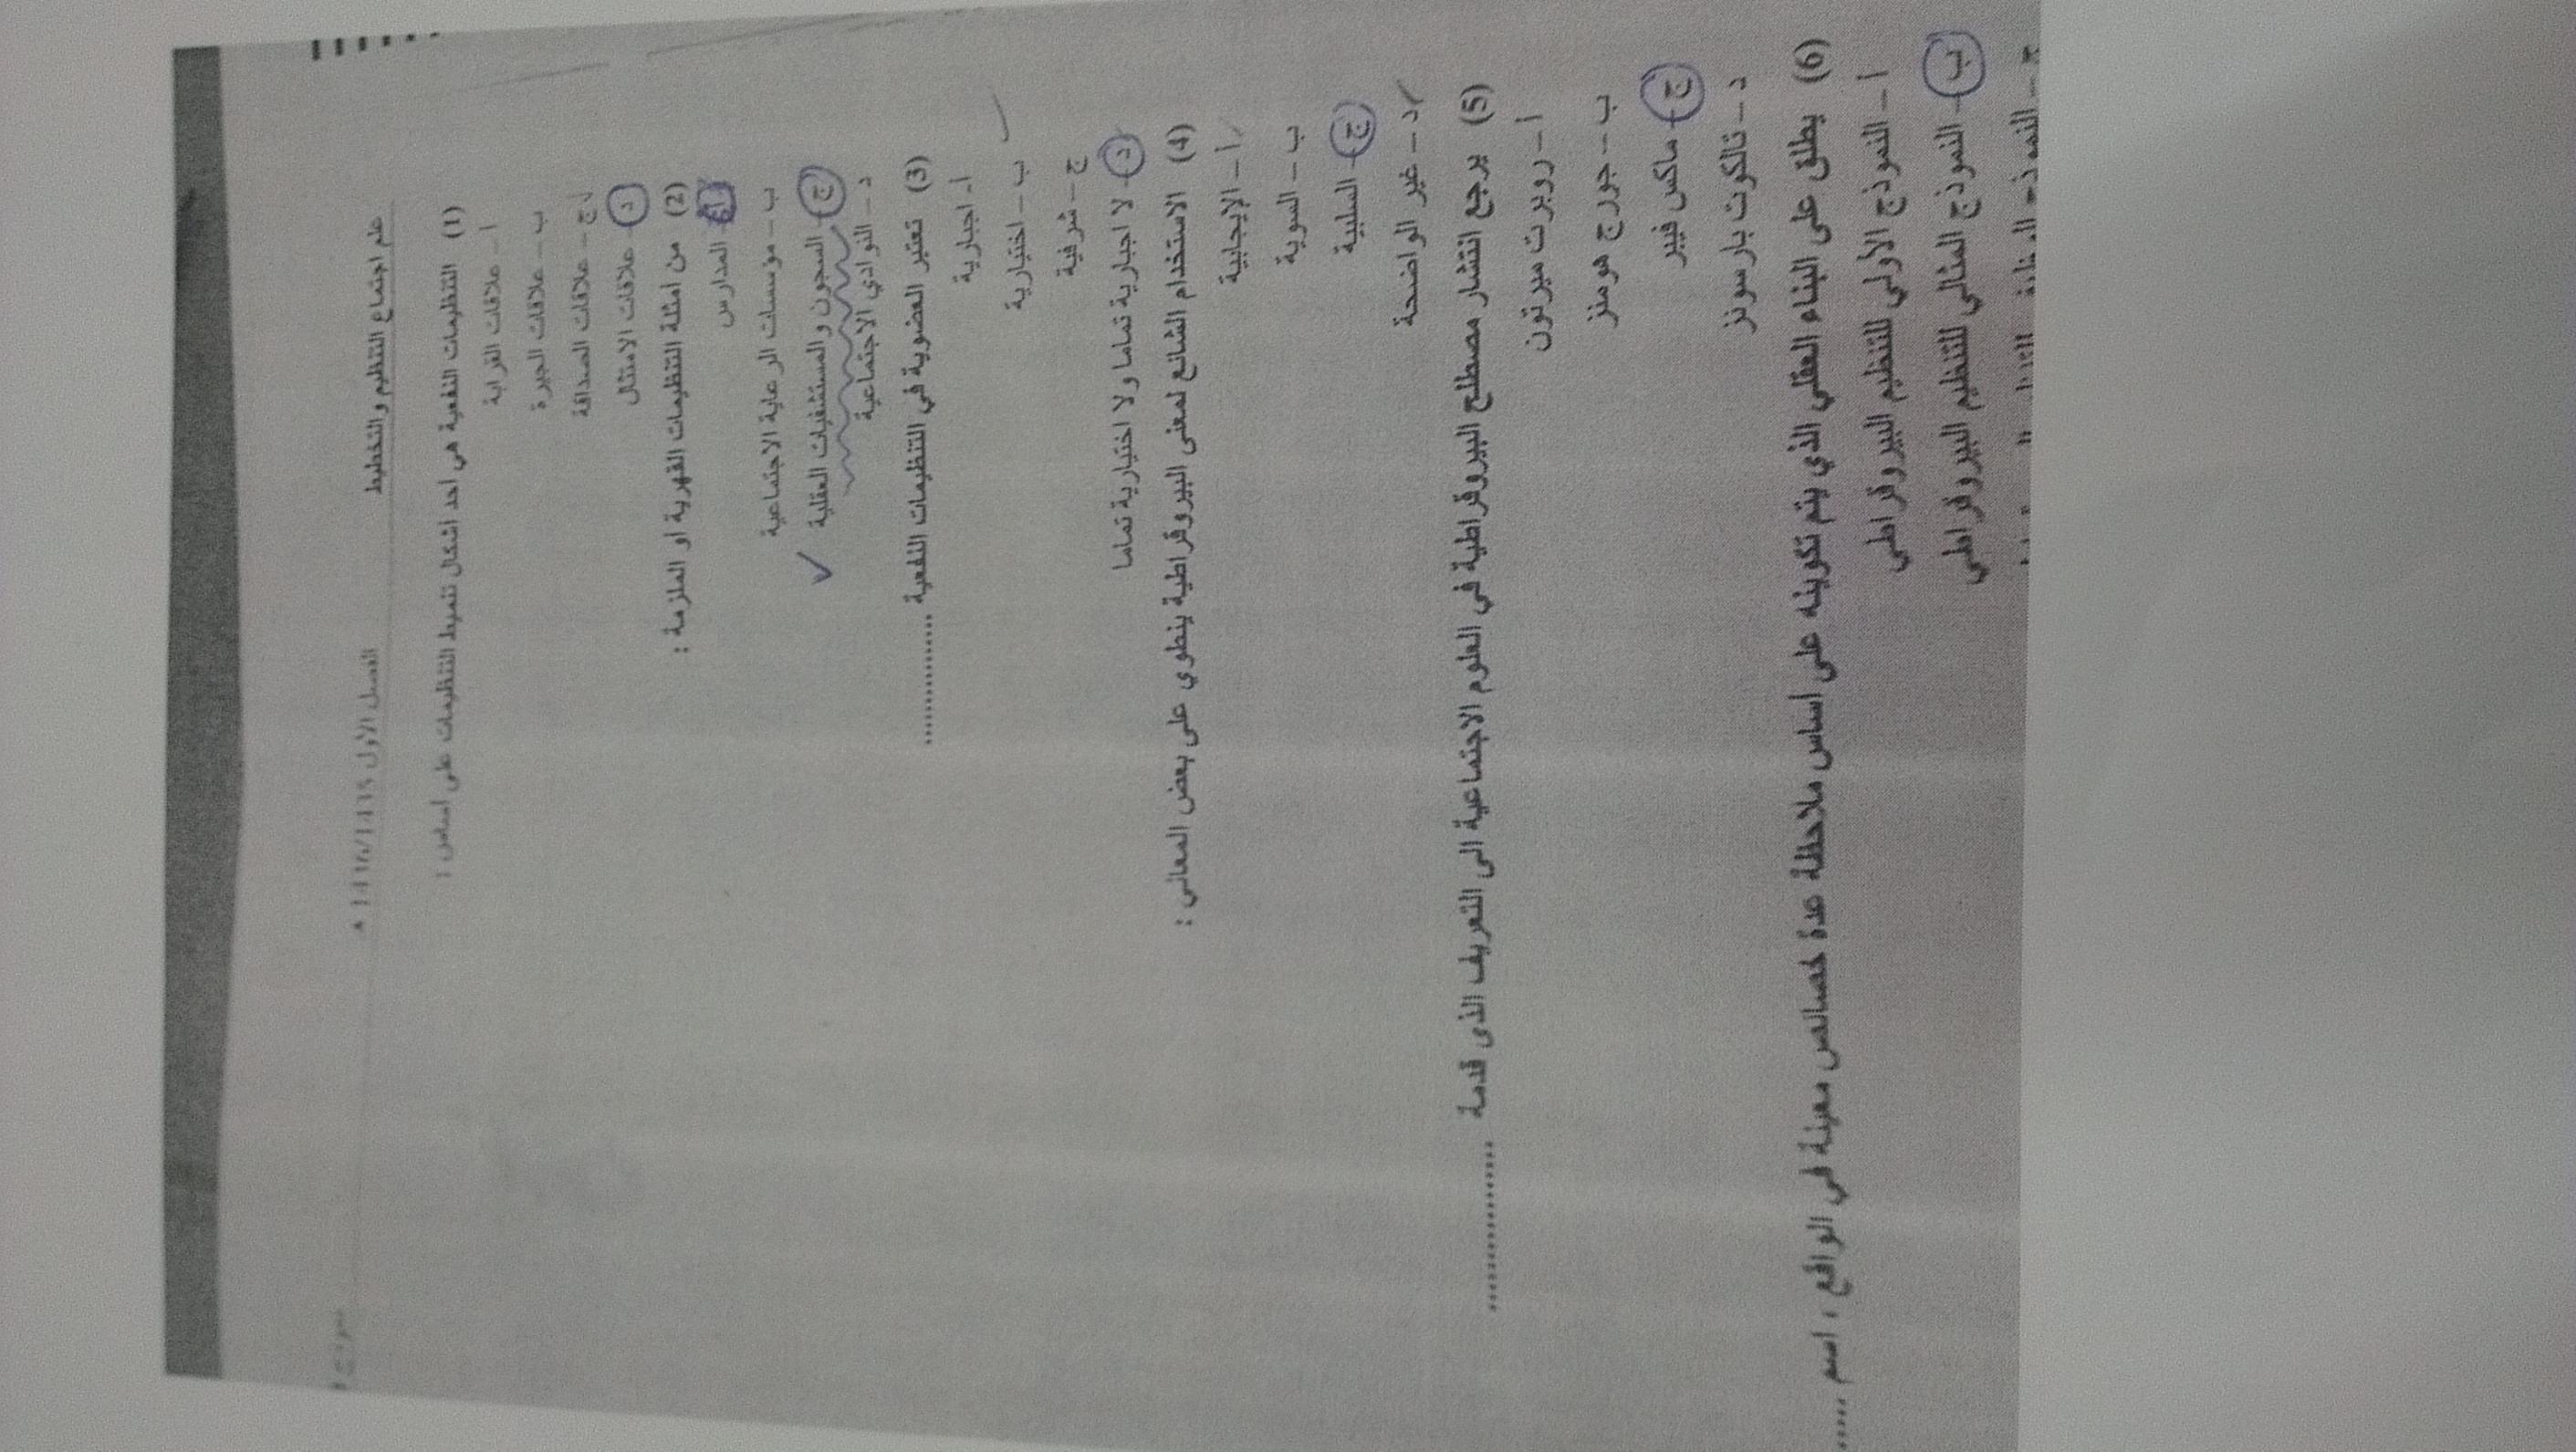 علم اجتماع التنظيم والتخطيط
الفصل الاول ١٤٣٥/١٤٣٦ ه
(1) التنظيمات النفعية هي احد اشكال تنميط التنظيمات على اساس :
أ – علاقات القرابة
ب – علاقات الجيرة
ج – علاقات الصداقة
د – علاقات الامتثال
(2) من امثلة التنظيمات القهرية او الملزمة :
أ – المدارس
ب – مؤسسات الرعاية الاجتماعية
ج – السجون والمستشفيات العقلية
د – النوادي الاجتماعية
(3) تعتبر العضوية في التنظيمات النفعية ..............
أ- اجبارية
ب – اختيارية
ج – شرفية
د – لا اجبارية تماما ولا اختيارية تماما
(4) الاستخدام الشائع لمعنى البيروقراطية ينطوي على بعض المعاني :
أ – الايجابية
ب – السوية
ج – السلبية
د – غير الواضحة
(5) يرجع انتشار مصطلح البيروقراطية في العلوم الاجتماعية الى التعريف الذى قدمة ................
أ – روبرت ميرتون
ب – جورج هومنز
ج – ماكس فيبر
د – تالكوت بارسونز
(6) يطلق على البناء العقلي الذي يتم تكوينه على اساس ملاحظة عدة خصائص معينة في الواقع ، اسم .....
أ – النموذج الأولي للتنظيم البيروقراطي
ب – النموذج المثالي للتنظيم البيروقراطي
ج – النموذج